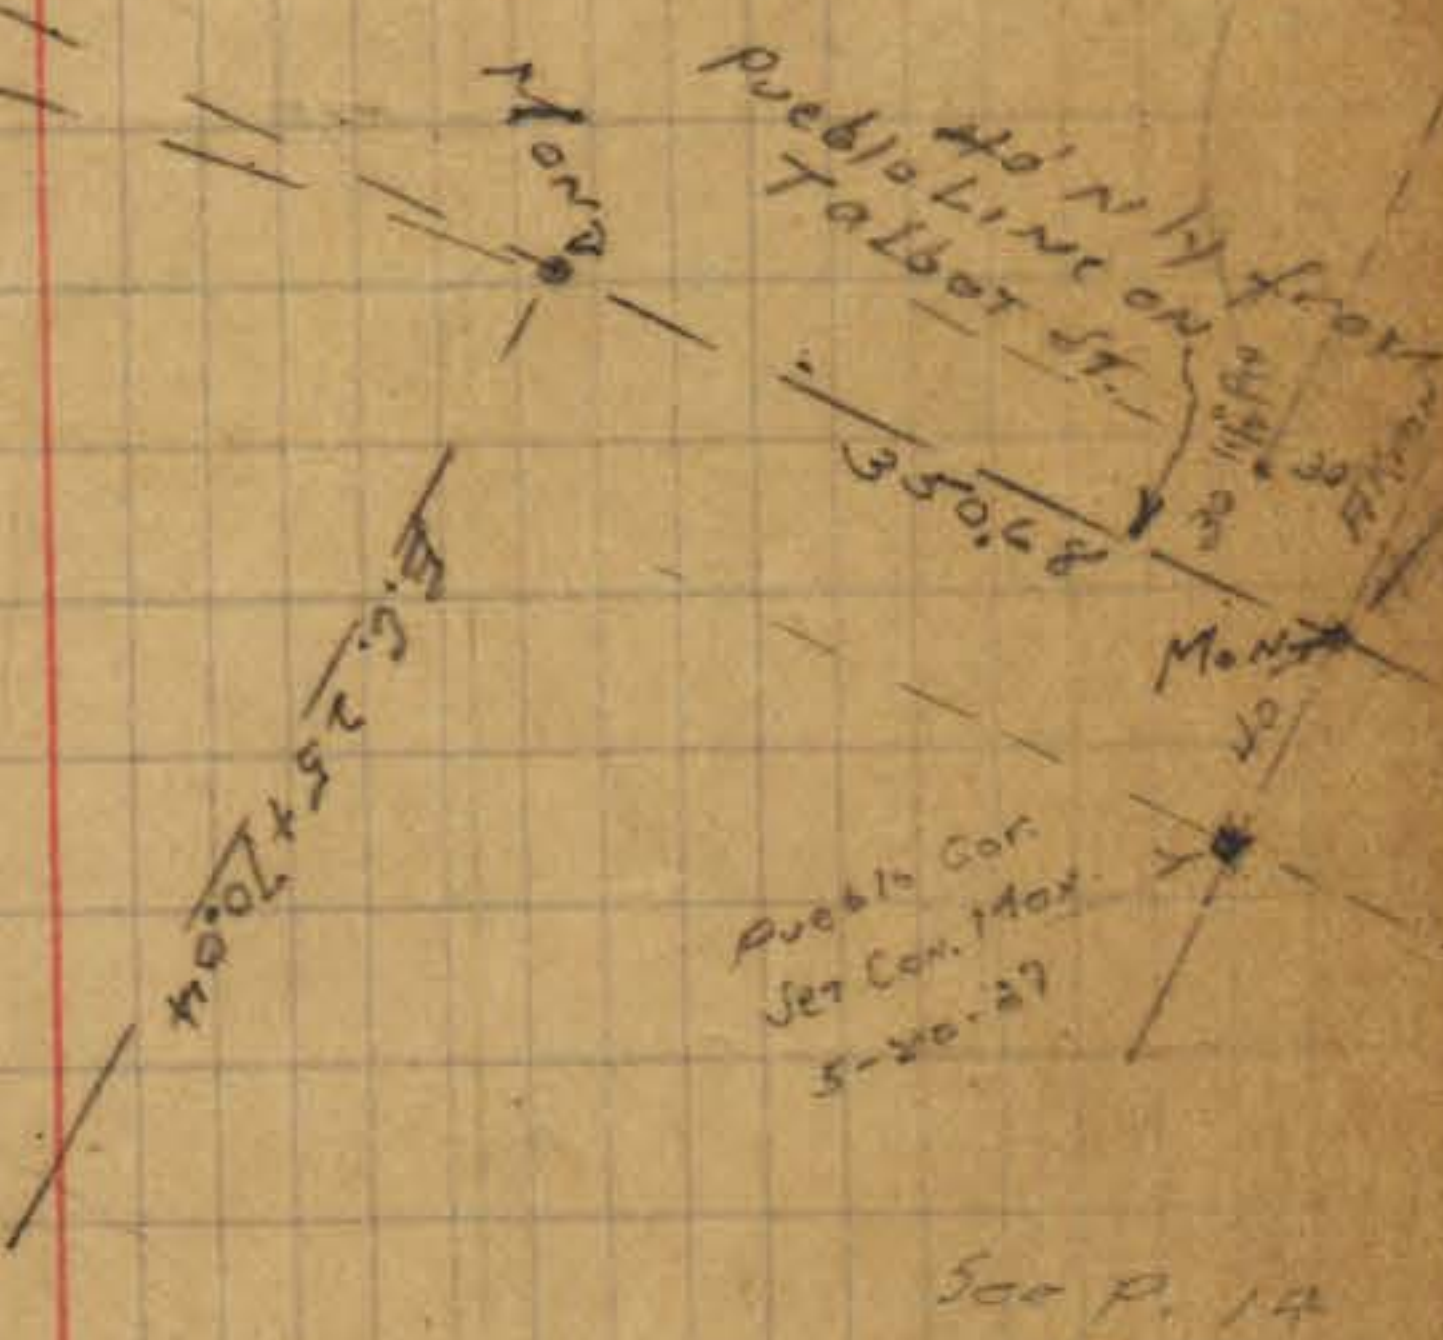 Mon
40' N'ly from
Pueblo Line on
Talbot St.
350.68
30
30
Mon
40
Pueblo Cor.
Set Con. Mon.
5-20-27
See P. 14